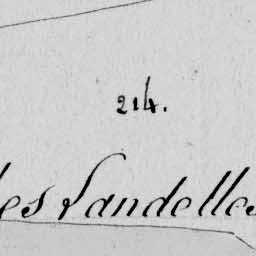 214.
les Landelles